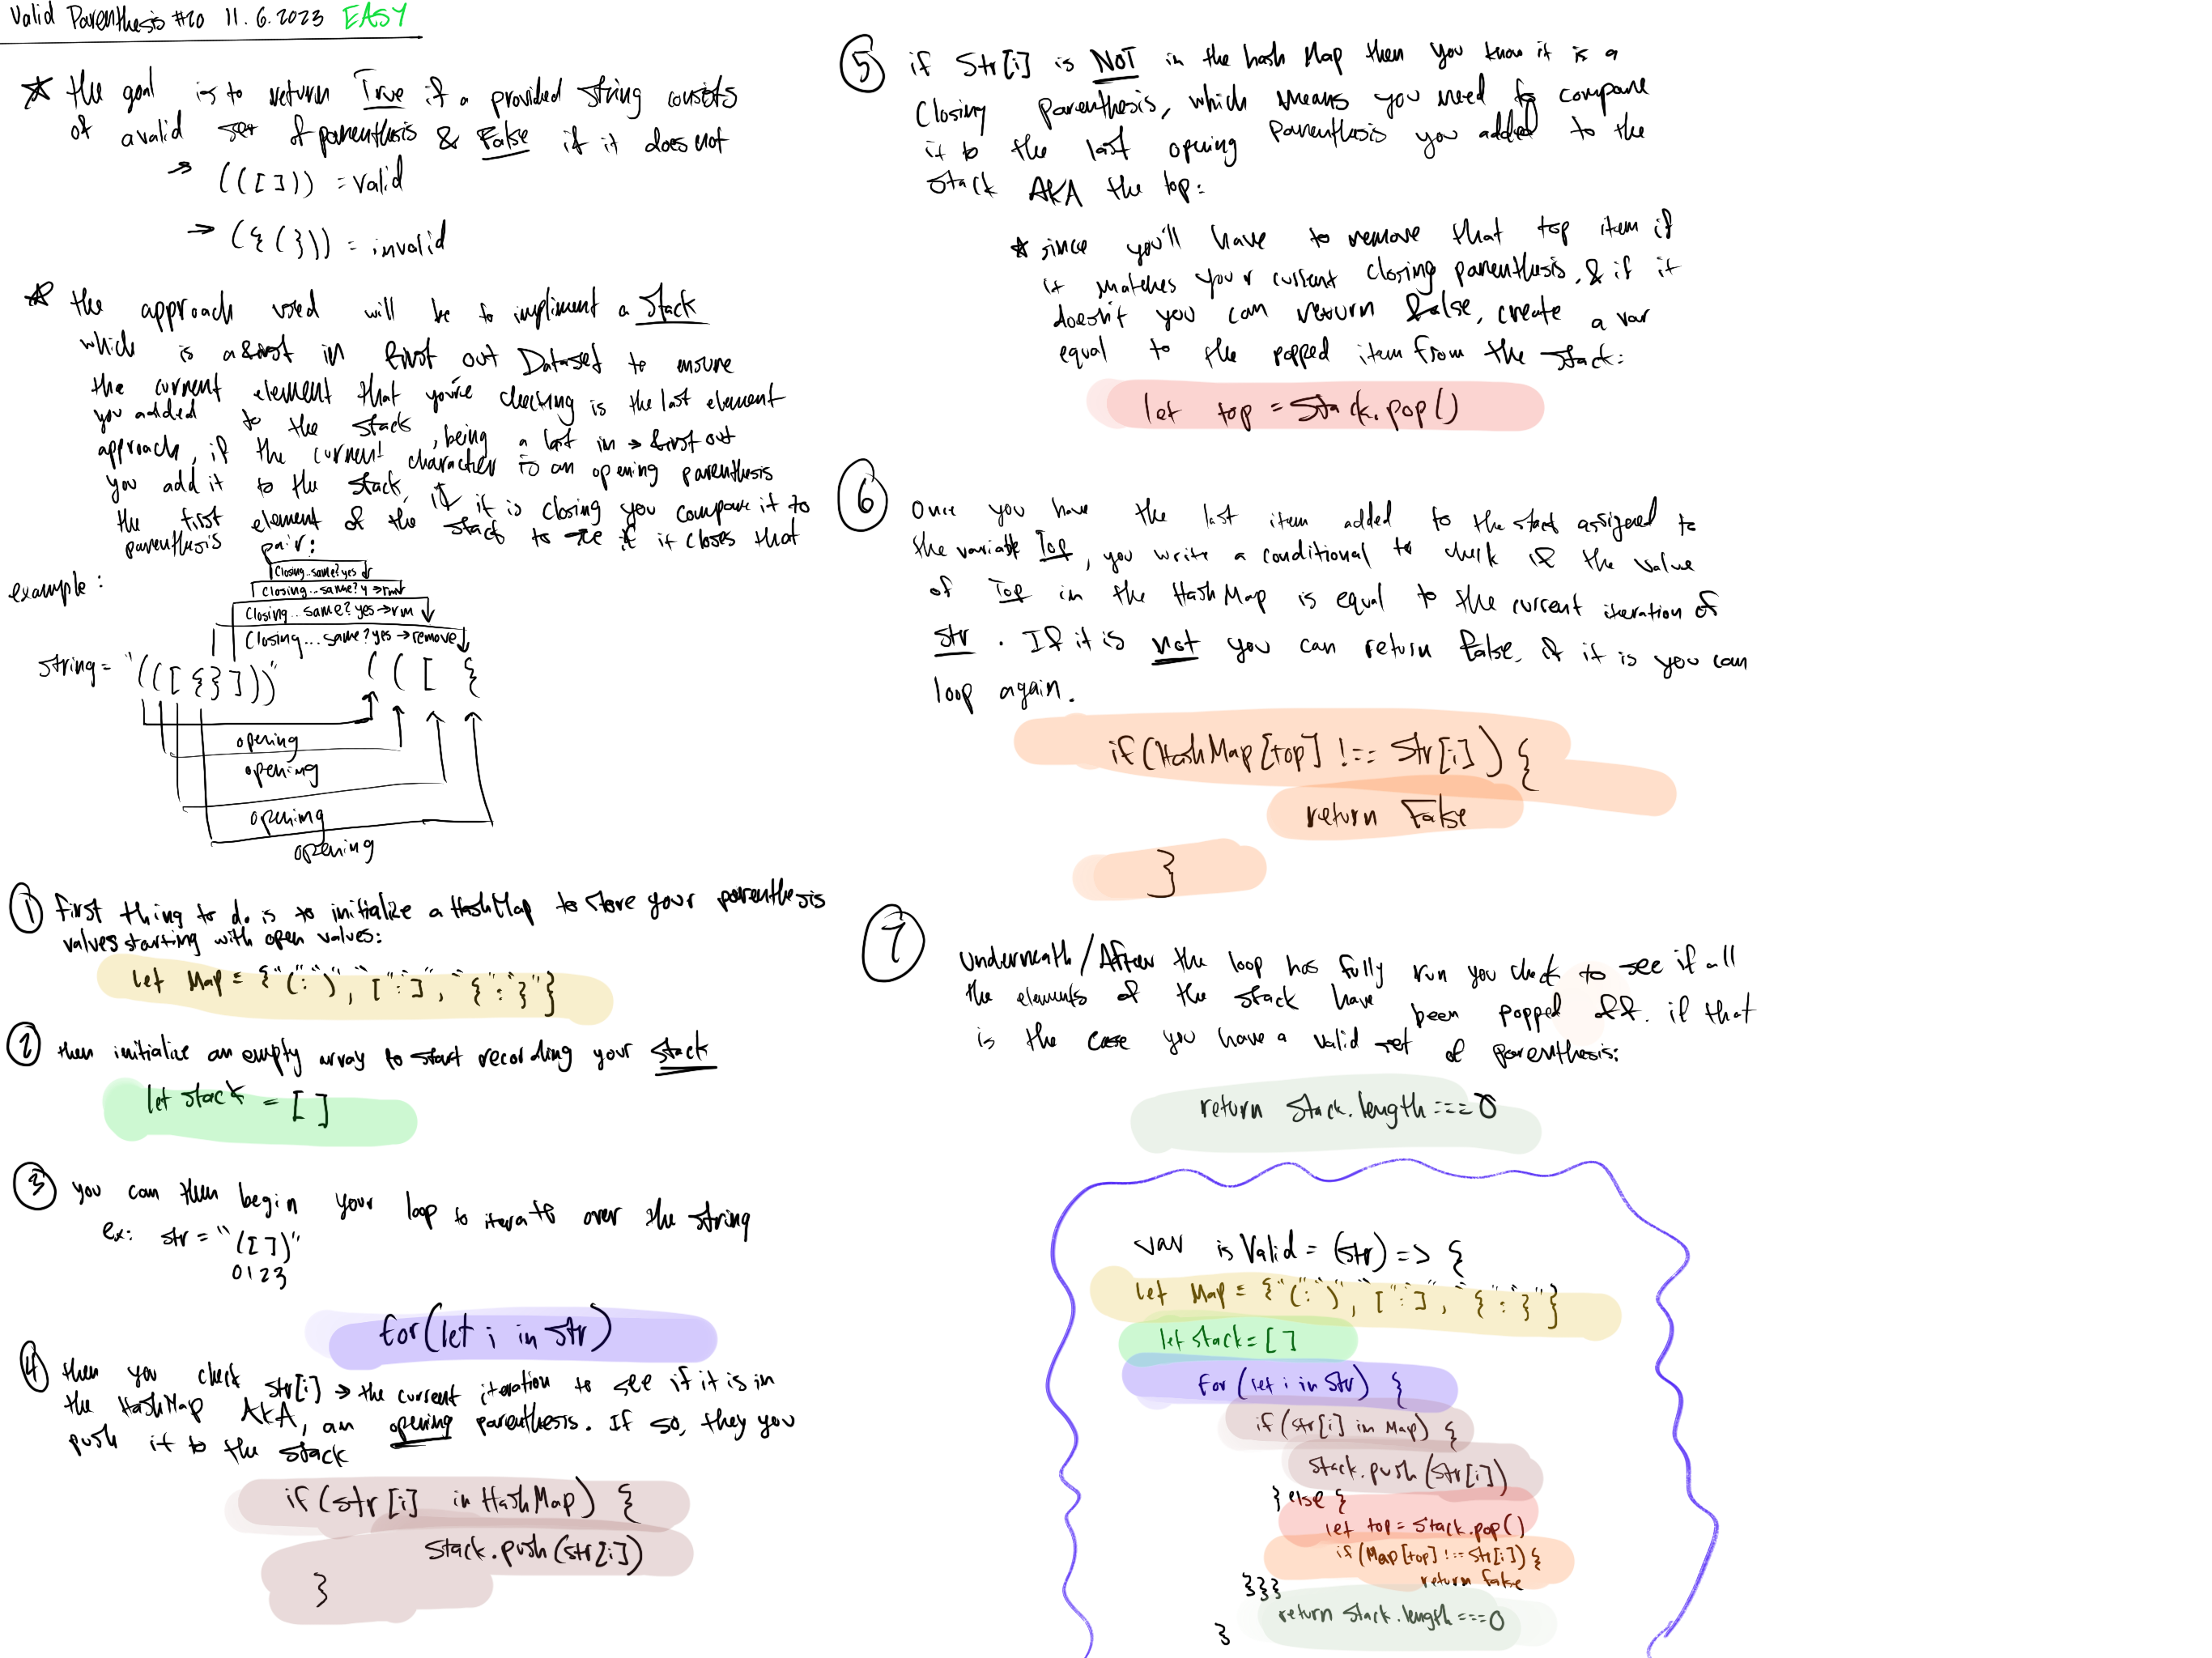 Valid Parenthesis #20 11.6.2023 EASY
☆ the goal is to return True if a provided string consists
of a valid set of parenthesis & False if it does not
→ (([])) = valid
→ ({(})) = invalid
☆ the approach used will be to impliment a Stack
which is a first in first out Dataset to ensure
the current element that you're checking is the last element
you added to the stack, being a last in → first out
approach, if the current character is an opening parenthesis
you add it to the stack, if it is closing you compare it to
the first element of the stack to see if it closes that
parenthesis pair:
example:
Closing..same? yes ↓
Closing...same? y → rm
Closing... same? yes → rm ↓
Closing... same? yes → remove ↓
string = "(([{}]))" ( ( [ {
opening
opening
opening
opening
① first thing to do is to initialize a HashMap to store your parenthesis
values starting with open values:
let Map = {"(":")", "[":"]", "{":"}"}
② then initialize an empty array to start recording your stack
let stack = []
③ you can then begin your loop to iterate over the string
ex: str = "([])"
0123
for(let i in str)
④ then you check str[i] → the current iteration to see if it is in
the HashMap AKA, an opening parenthesis. If so, they you
push it to the stack
if(str[i] in HashMap) {
stack.push(str[i])
}
⑤ if Str[i] is NOT in the hash Map then you know it is a
Closing parenthesis, which means you need to compare
it to the last opening Parenthesis you added to the
stack AKA the top:
☆ since you'll have to remove that top item if
it matches your current closing parenthesis, & if it
doesn't you can return false, create a var
equal to the popped item from the stack:
let top = Stack.pop()
⑥ Once you have the last item added to the stack assigned to
the variable Top, you write a conditional to check if the value
of Top in the HashMap is equal to the current iteration of
str. If it is not you can return false, if it is you can
loop again.
if(HashMap[top] !== Str[i]) {
return False
}
⑦ Underneath/After the loop has fully run you check to see if all
the elements of the stack have been popped off. if that
is the case you have a valid set of parenthesis:
return Stack.length === 0
var isValid = (str) => {
let Map = {"(":")", "[":"]", "{":"}"}
let stack = []
for (let i in Str) {
if (str[i] in Map) {
Stack.push(Str[i])
} else {
let top = Stack.pop()
if(Map[top] !== Str[i]) {
return false
}}}
return Stack.length === 0
}